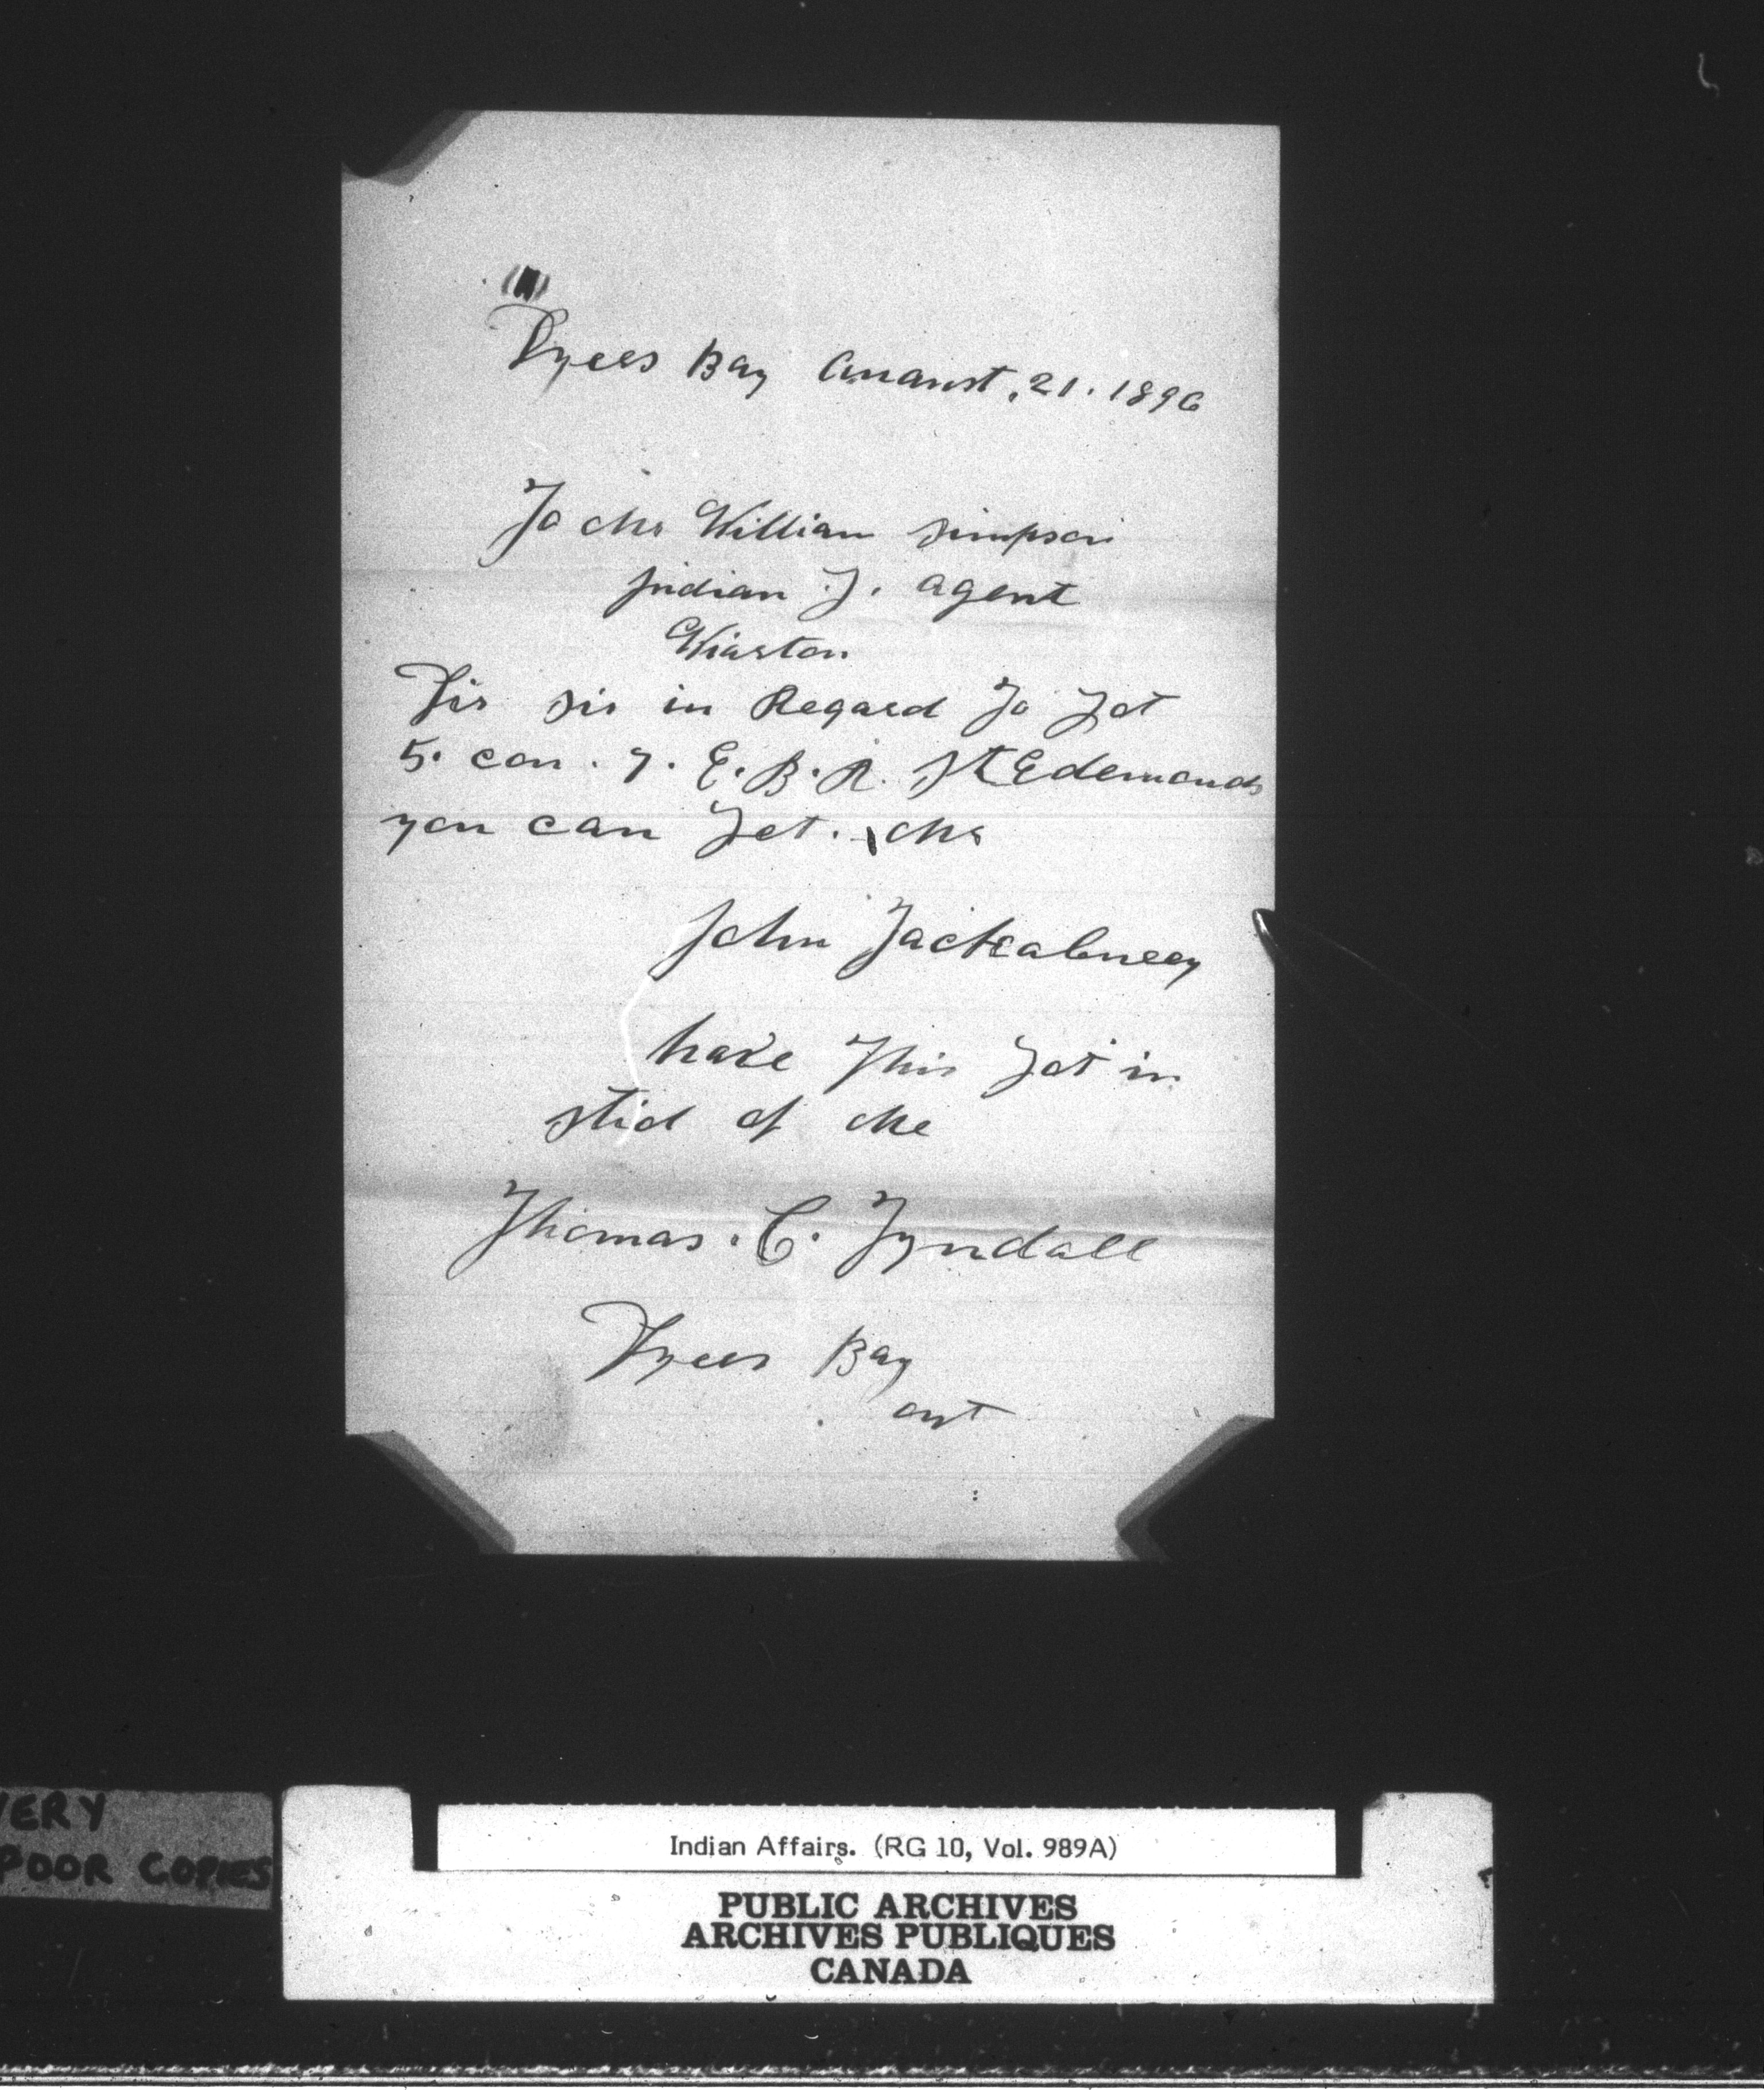 Dyees Bay Auaust. 21. 1896
To Mr William Simpson
Indian L. agent
Wiarton
Dir sir in Regard To Lot
5. con. 7. E. B. R. St Edemands
you can Let. Mr
John
have This Lot in
stid of Me
Thomas. C. Tyndall
Dyees Bay
ont
VERY
POOR COPIES
Indian Affairs. (RG 10, Vol. 989A)
PUBLIC ARCHIVES
ARCHIVES PUBLIQUES
CANADA